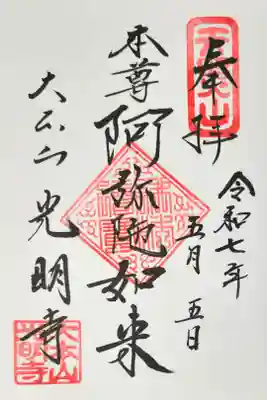 天照山
奉拝
令和七年
五月五日
本尊
阿弥陀如来
大本山光明寺
大本山
光明寺